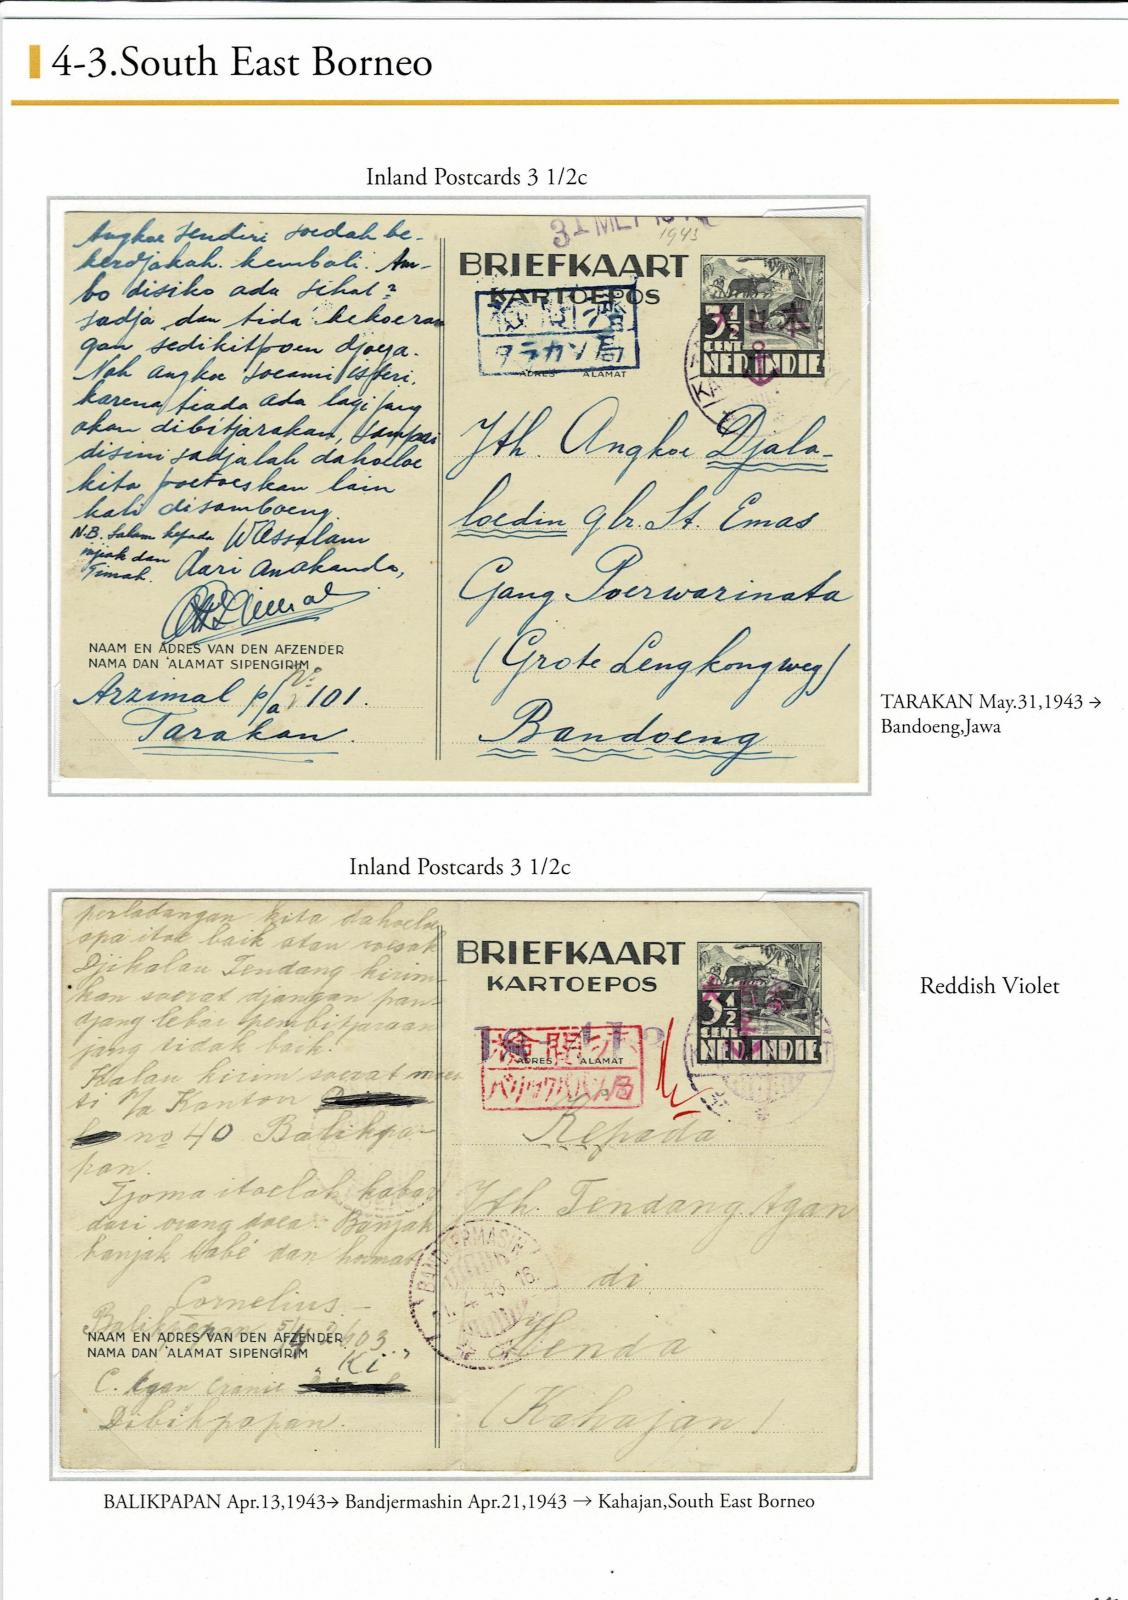 4-3.South East Borneo
Inland Postcards 3 1/2c
31 MEI
1943
BRIEFKAART
KARTOEPOS
検閲済
タラカン局
ADRES ALAMAT
3½
CENT
NED.INDIE
Angkoe sendiri soedah be-
kerdjakah kembali. Am-
bo disiko ada sihat2
sadja dan tida kekoeran
gan sedikitpoen djoega.
Nah Angkoe soeami isteri,
karena tiada ada lagi jang
akan dibitjarakan, sampai
disini sadjalah dahoeloe
kita poetoeskan lain
kali disamboeng.
N.B. Salam kepada
Wassalam
dari Anakanda,
NAAM EN ADRES VAN DEN AFZENDER
NAMA DAN ALAMAT SIPENGIRIM
Arzimal p/a 101.
Tarakan.
Jth. Angkoe Djala-
loedin glr. St. Emas
Gang Poerwarinata
(Grote Lengkongweg)
Bandoeng
TARAKAN May.31,1943 →
Bandoeng,Jawa
Inland Postcards 3 1/2c
BRIEFKAART
KARTOEPOS
検閲済
バリックパパン局
ADRES ALAMAT
3½
CENT
NED.INDIE
Reddish Violet
perladangan kita dahoeloe
apa itoe baik atau roesak
Djikalau Tendang kirim-
kan soerat djangan pan-
djang lebar pembitjaraan
jang tidak baik.
Kalau kirim soerat moes
ti p/a Kantor
no 40 Balikpa-
pan.
Tjoma itoelah kabar
dari orang doea. Banjak
banjak tabé dan hormat
Cornelius.-
Balikpapan 5/4 2603.
NAAM EN ADRES VAN DEN AFZENDER
NAMA DAN ALAMAT SIPENGIRIM
„Ki”
C. Agan
Dibikpapan.
Kepada
Jth. Tendang Agan
di
Henda
(Kahajan)
BANDJERMASIN
BALIKPAPAN Apr.13,1943→ Bandjermashin Apr.21,1943 → Kahajan,South East Borneo